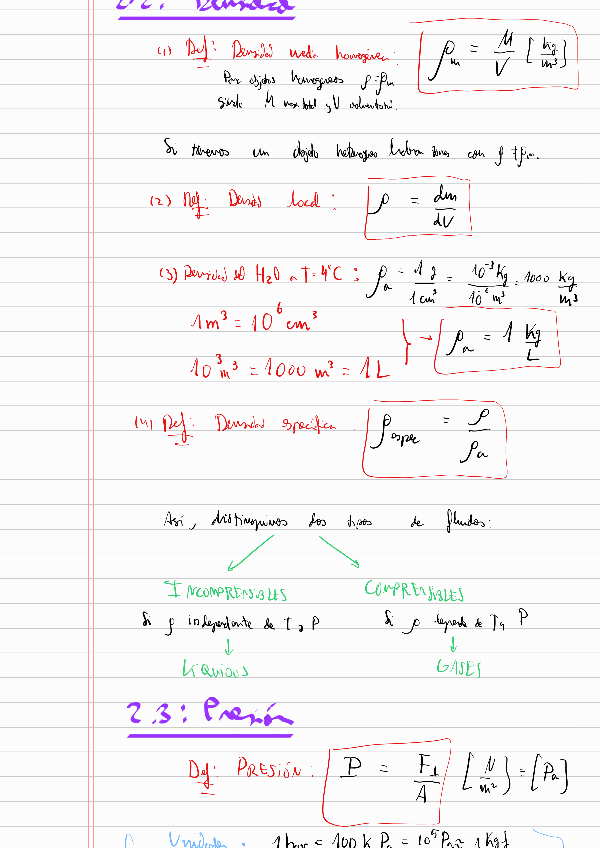 2.2: Densidad
(1) Def: Densidad media homogénea: ρm = M/V [kg/m³]
Para objetos homogéneos ρ=ρm
siendo M masa total y V volumen total.
Si tenemos un objeto heterogéneo habrá zonas con ρ ≠ ρm.
(2) Def: Densidad local: ρ = dm/dV
(3) Densidad del H2O a T=4°C: ρa = 1 g/1 cm³ = 10⁻³ Kg/10⁻⁶ m³ = 1000 Kg/m³
1 m³ = 10⁶ cm³
→ ρa = 1 Kg/L
10³ m³ = 1000 m³ = 1 L
(4) Def: Densidad específica ρespec = ρ/ρa
Así, distinguimos dos tipos de fluidos:
INCOMPRENSIBLES COMPRENSIBLES
Si ρ independiente de T y P Si ρ depende de T y P
LÍQUIDOS GASES
2.3: Presión
Def: PRESIÓN: P = F⊥/A [N/m²] = [Pa]
Unidades: 1 bar = 100 k Pa = 10⁵ Pa ≈ 1 Kgf